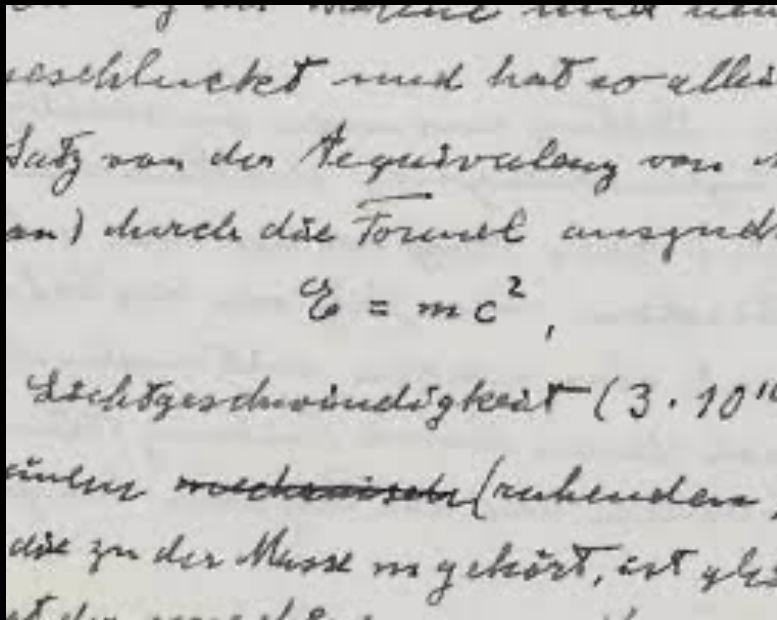 und
geschluckt und hat so allei
Satz von der Aequivalenz von
an) durch die Formel ausgedr
E = mc²,
Lichtgeschwindigkeit (3 · 10¹⁰
mechanisch (ruhenden,
die zu der Masse m gehört, ist gl